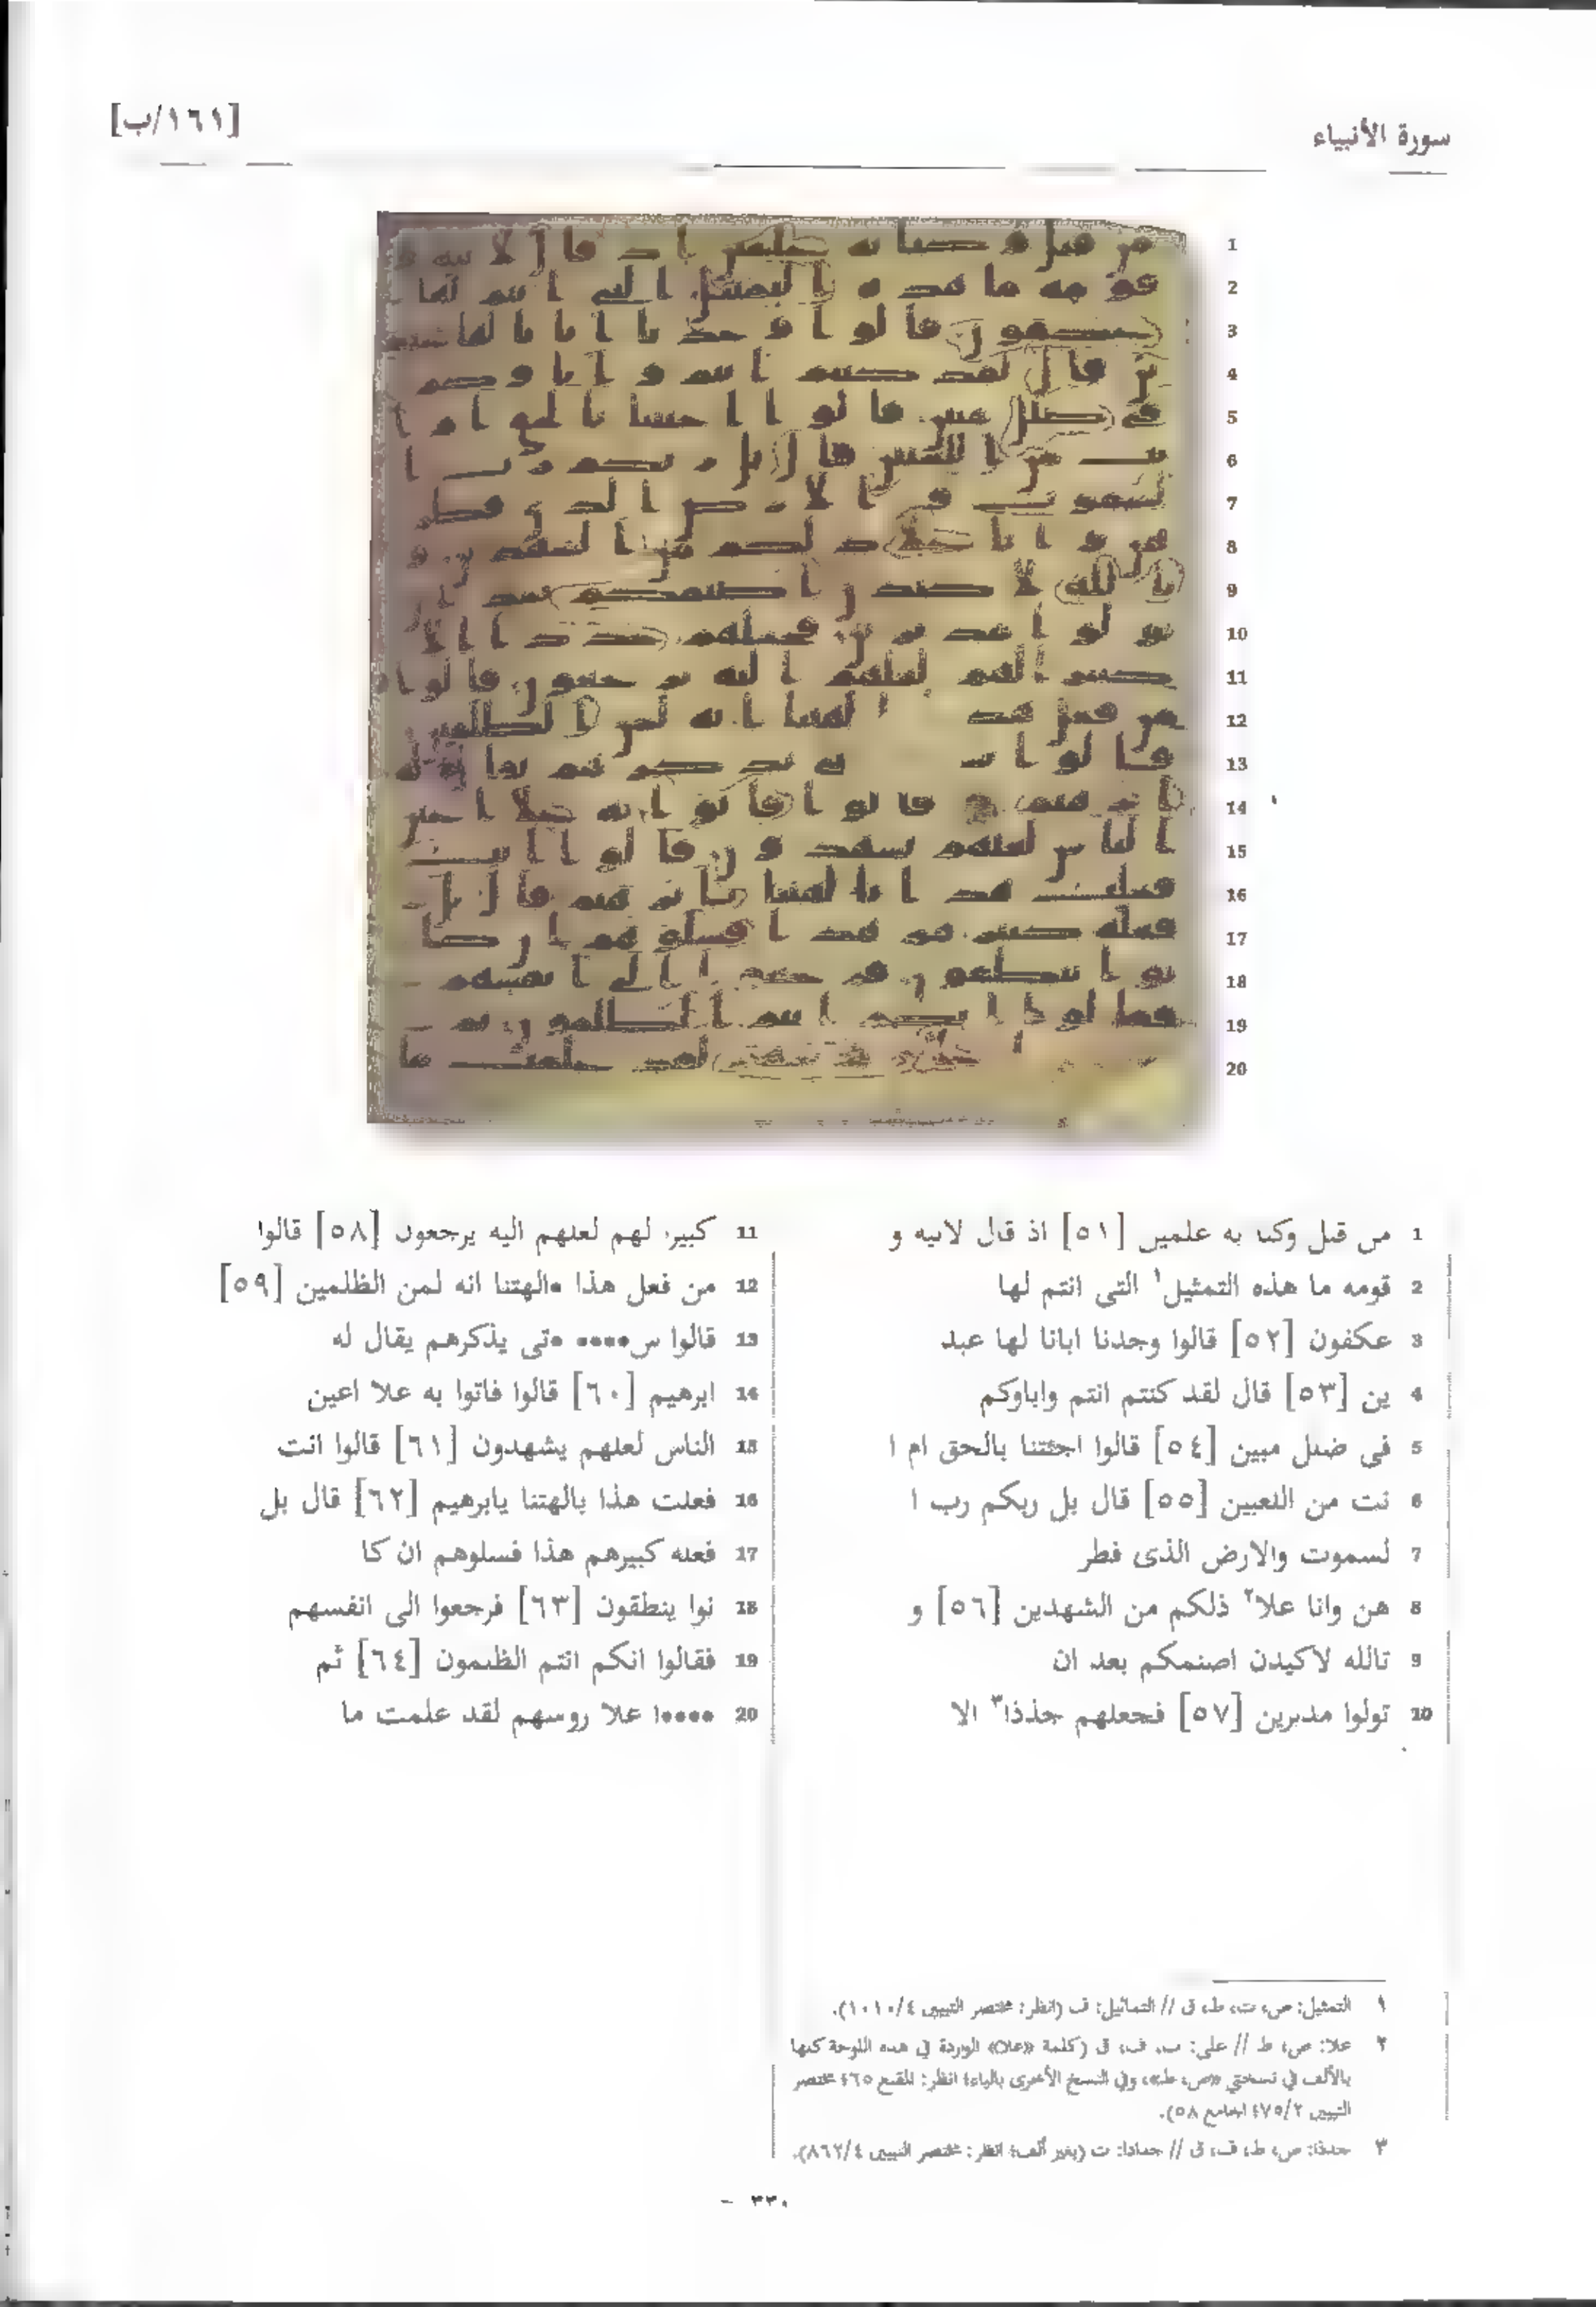 سورة الأنبياء
[١٦١/ب]
1 من قبل وكنا به علمين [٥١] اذ قال لابيه و
2 قومه ما هذه التمثيل١ التى انتم لها
3 عكفون [٥٢] قالوا وجدنا ابانا لها عبد
4 ين [٥٣] قال لقد كنتم انتم واباوكم
5 فى ضلل مبين [٥٤] قالوا اجئتنا بالحق ام ا
6 نت من اللعبين [٥٥] قال بل ربكم رب ا
7 لسموت والارض الذى فطر
8 هن وانا علا٢ ذلكم من الشهدين [٥٦] و
9 تالله لاكيدن اصنمكم بعد ان
10 تولوا مدبرين [٥٧] فجعلهم جذذا٣ الا
11 كبير لهم لعلهم اليه يرجعون [٥٨] قالوا
12 من فعل هذا •الهتنا انه لمن الظلمين [٥٩]
13 قالوا س•••• •تى يذكرهم يقال له
14 ابرهيم [٦٠] قالوا فاتوا به علا اعين
15 الناس لعلهم يشهدون [٦١] قالوا انت
16 فعلت هذا بالهتنا يابرهيم [٦٢] قال بل
17 فعله كبيرهم هذا فسلوهم ان كا
18 نوا ينطقون [٦٣] فرجعوا الى انفسهم
19 فقالوا انكم انتم الظلمون [٦٤] ثم
20 ••••ا علا روسهم لقد علمت ما
١ التمثيل: ص، ت، ط، ق // التماثيل: ف (انظر: مختصر التبيين ١٠١٠/٤).
٢ علا: ص، ط // على: ت، ف، ق (كلمة «علا» الواردة في هذه اللوحة كلها
بالألف في نسختي «ص، ط»، وفي النسخ الأخرى بالياء؛ انظر: المقنع ٤٦٥ مختصر
التبيين ٤٧٥/٢ الجامع ٥٨).
٣ جذذا: ص، ط، ف، ق // جذاذا: ت (بغير ألف؛ انظر: مختصر التبيين ٨٦٢/٤).
٣٣٠